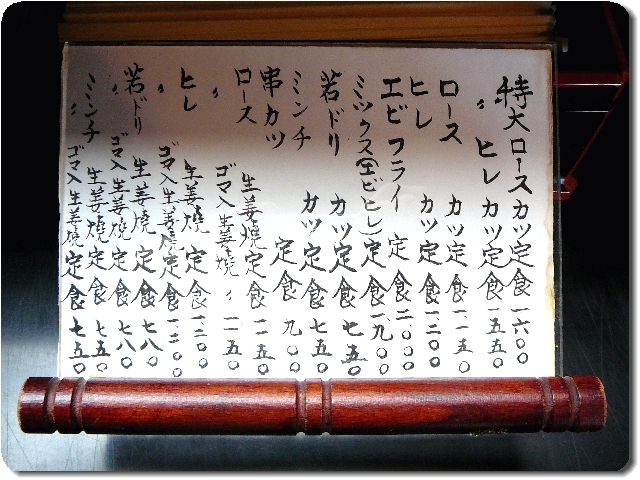 特大ロースカツ定食 一六〇〇
〃 ヒレカツ定食 一五五〇
ロースカツ定食 一一五〇
ヒレカツ定食 一二〇〇
エビフライ定食 二〇〇〇
ミックス(エビヒレ)定食 一九〇〇
若ドリカツ定食 七五〇
ミンチカツ定食 七五〇
串カツ定食 九〇〇
ロース生姜焼定食 一一五〇
〃 ゴマ入生姜焼〃 一一五〇
ヒレ生姜焼定食 一二〇〇
〃 ゴマ入生姜焼定食 一二〇〇
若ドリ生姜焼定食 七八〇
〃 ゴマ入生姜焼定食 七八〇
ミンチ生姜焼定食 七五〇
〃 ゴマ入生姜焼定食 七五〇